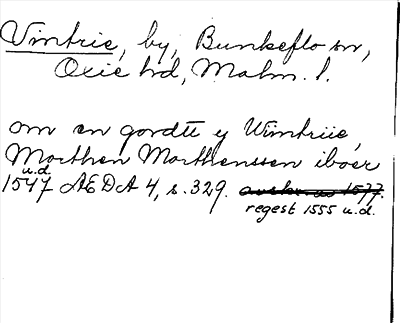 Vintrie, by, Bunkeflo sn,
Oxie hd, Malm. l.
om en gordtt y Wimtriie,
Morthen Morthenssen iboer
u.d.
1547 ÆDA 4, s. 329.
regest 1555 u.d.